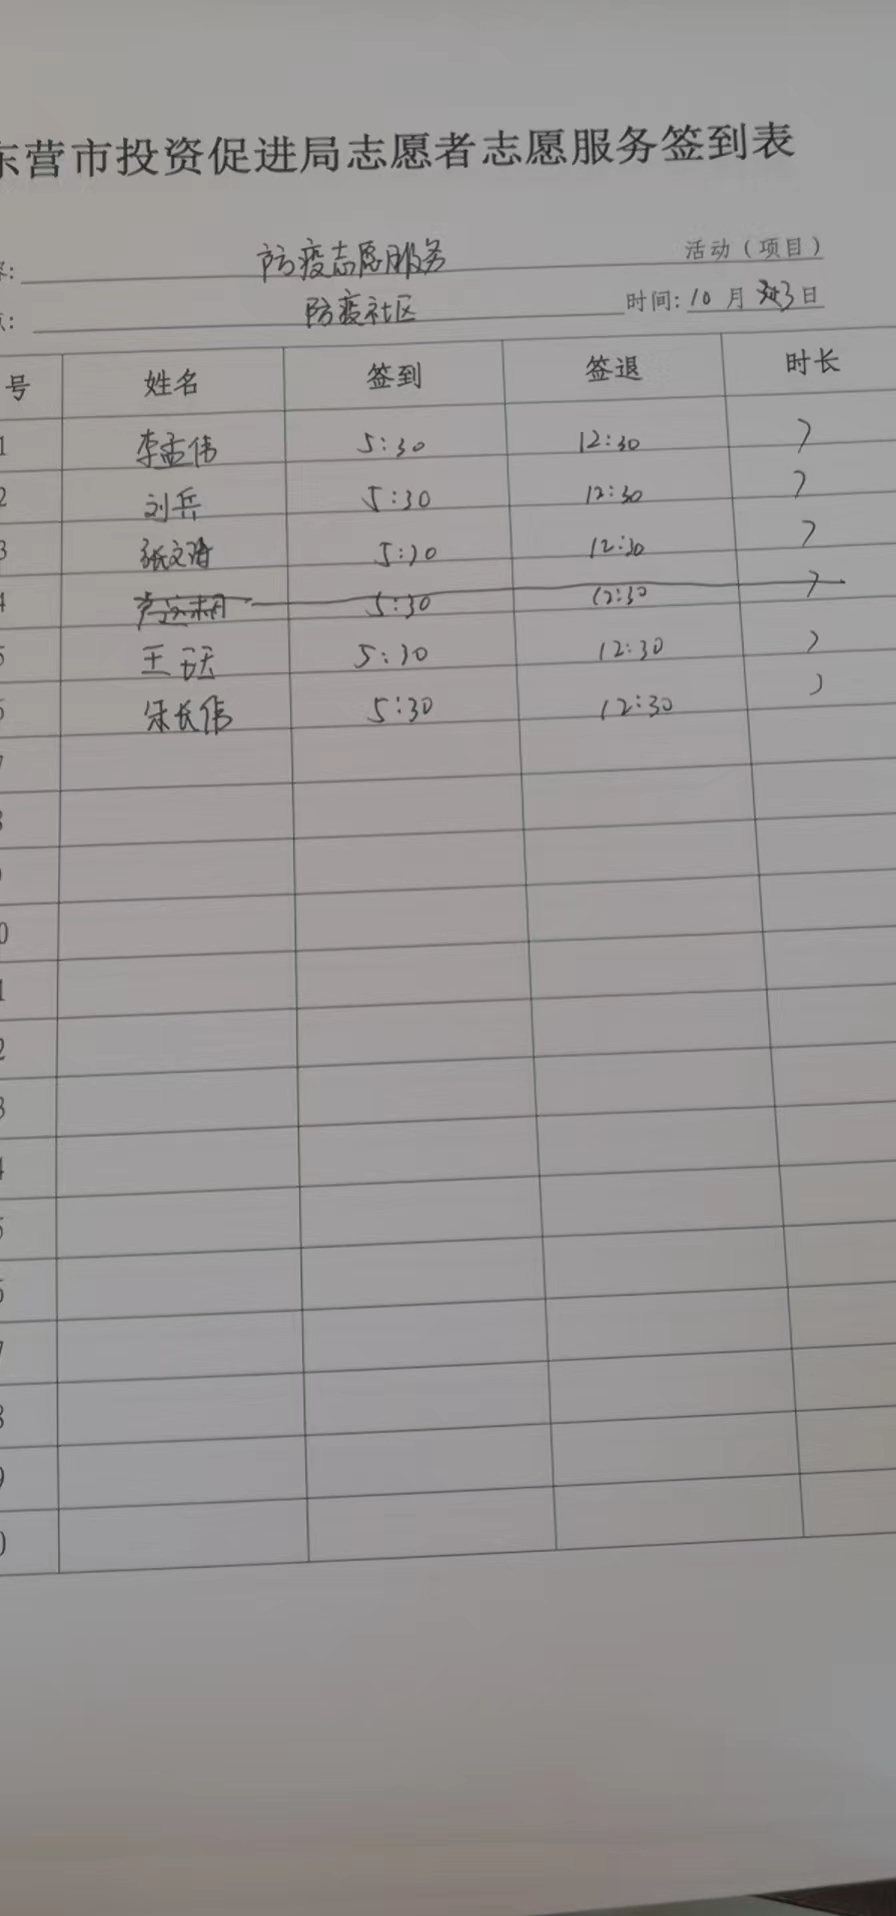 东营市投资促进局志愿者志愿服务签到表
防疫志愿服务 活动（项目）
防疫社区 时间: 10 月 3 日
号 姓名 签到 签退 时长
1 李孟伟 5:30 12:30 7
2 刘兵 5:30 12:30 7
3 张文 5:30 12:30 7
4 5:30 12:30 7
5 王 5:30 12:30 7
6 宋长伟 5:30 12:30 7
7
8
9
0
1
2
3
4
5
6
7
8
9
0